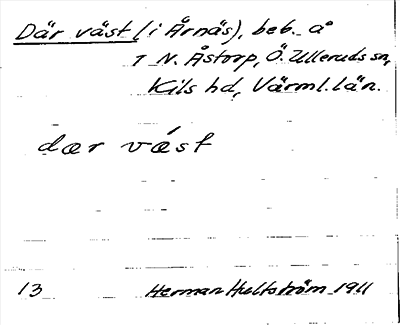 Där väst (i Årnäs), beb. å
1 N. Åstorp, Ö. Ulleruds sn,
Kils hd, Värml. län.
dær vǽst
13 Herman Hultström 1911